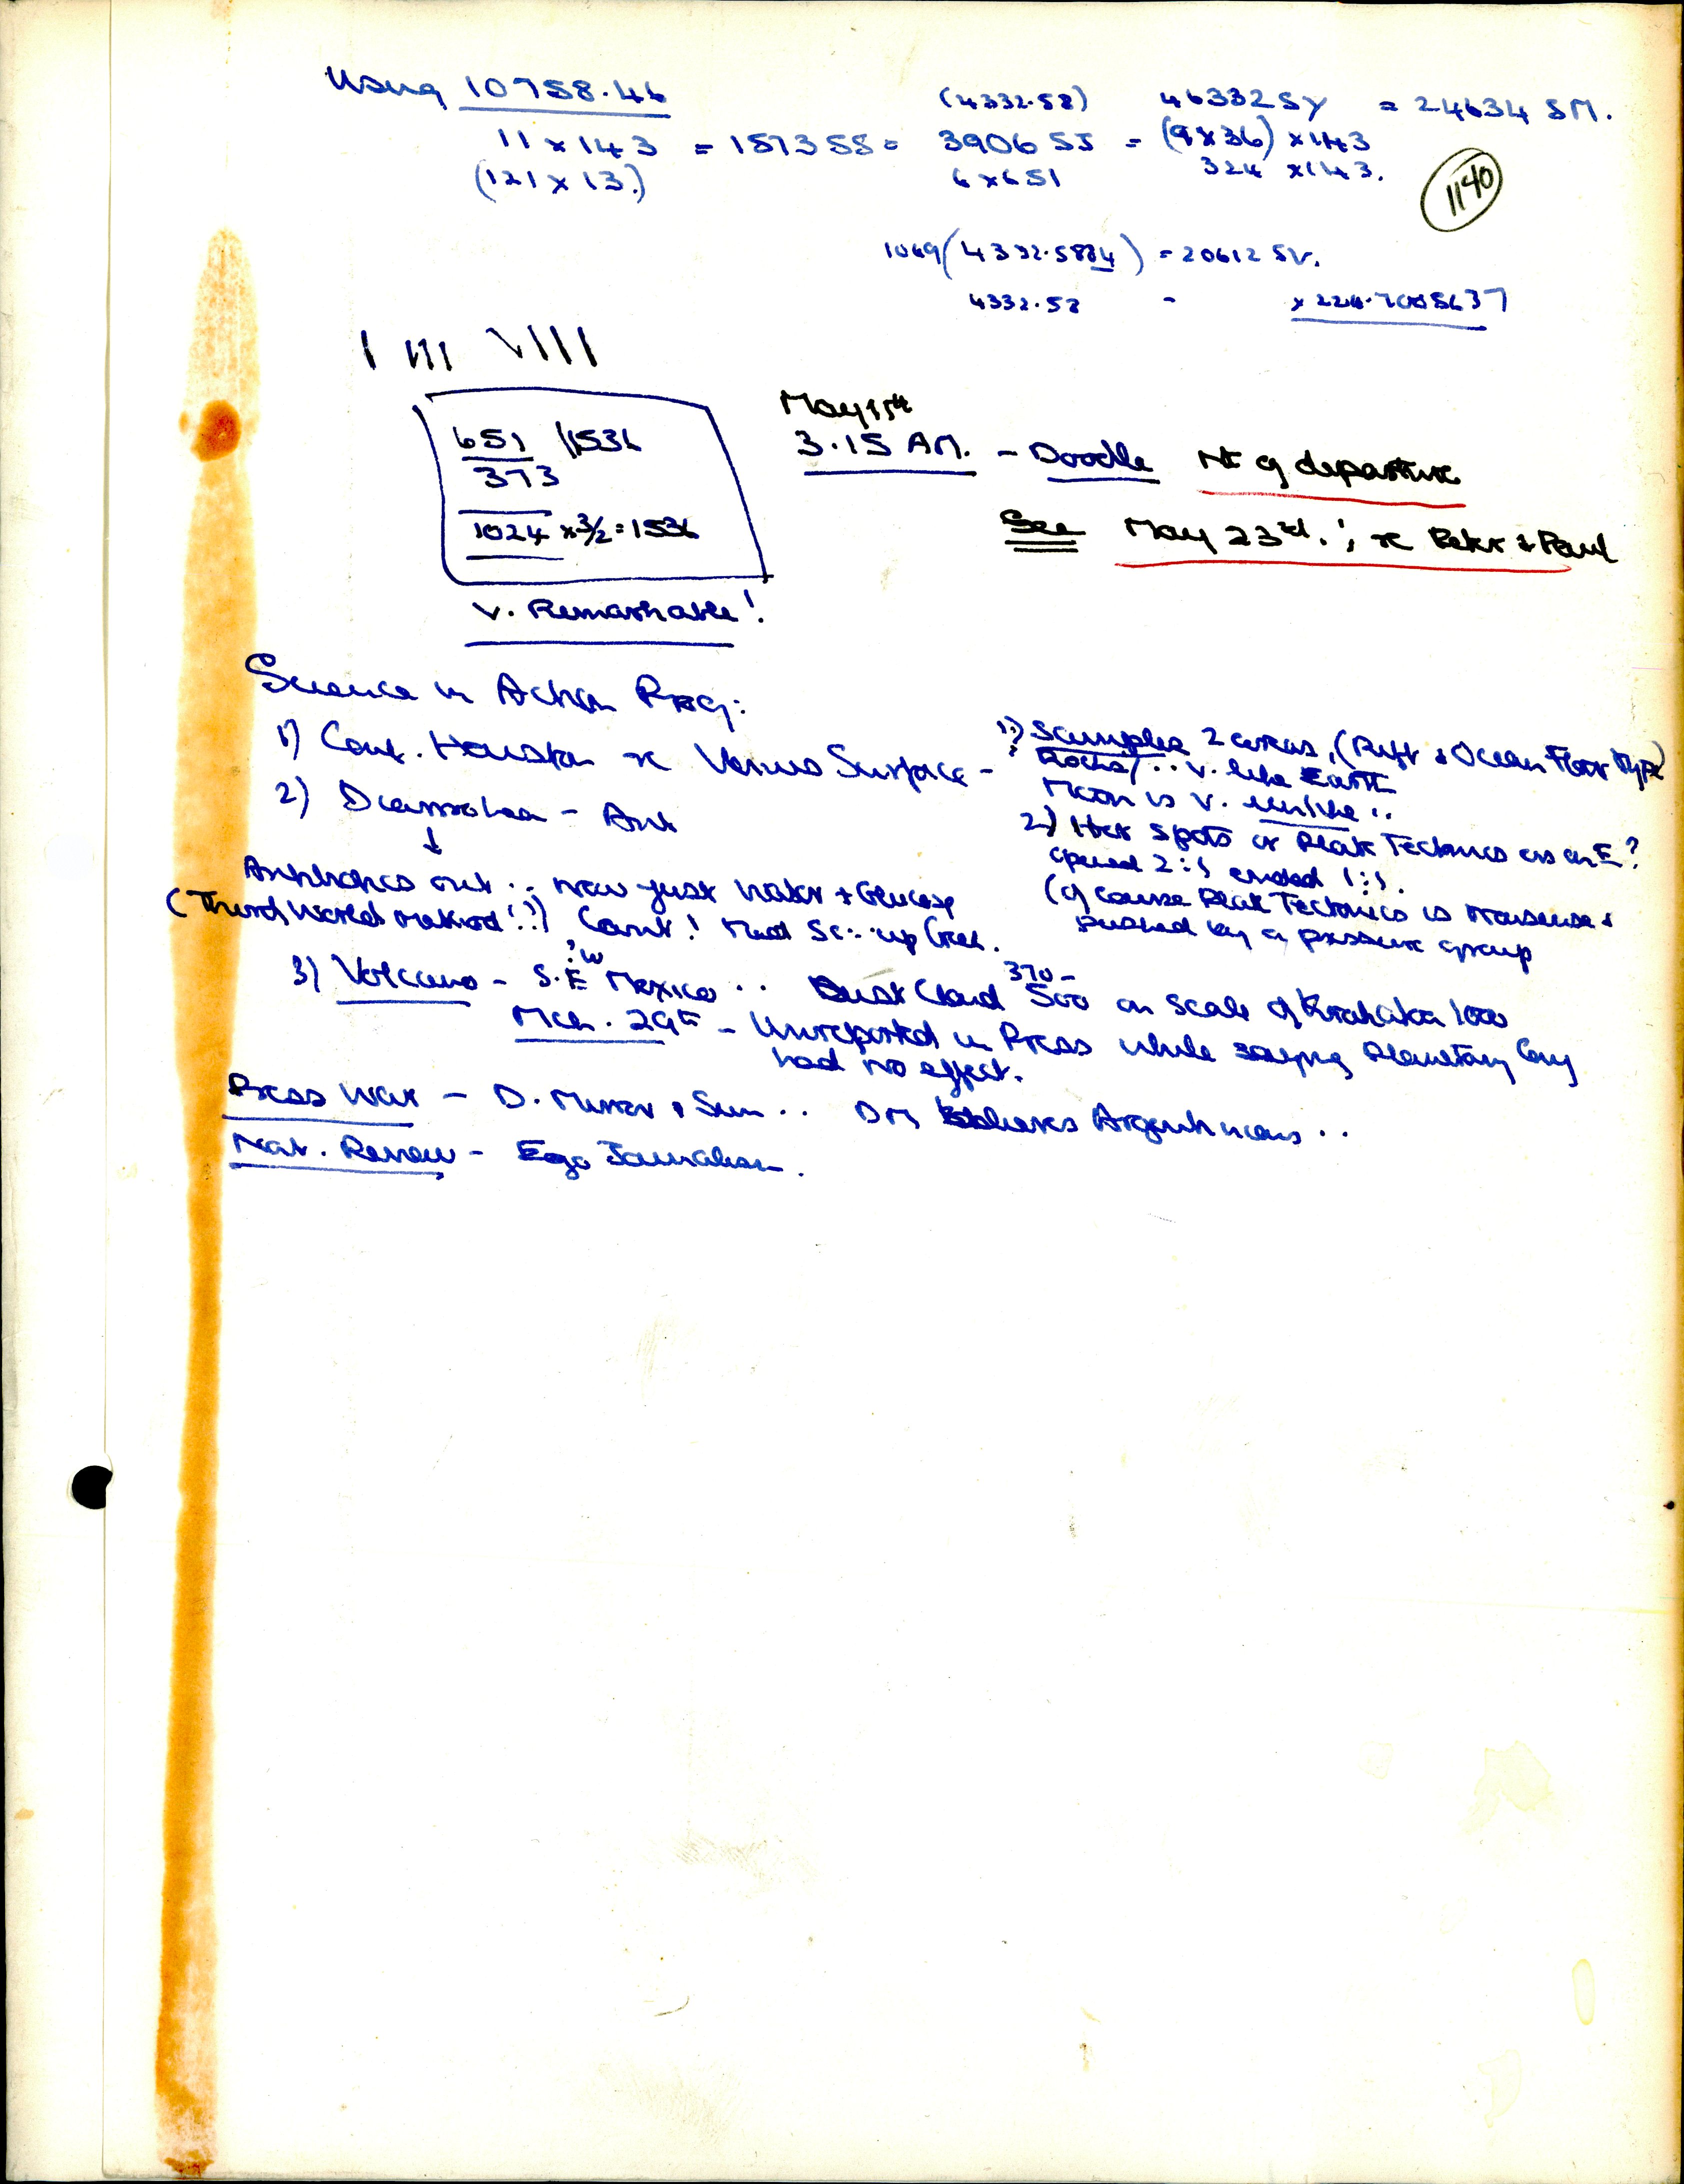 Using 10758.46
(4332.58) 46332 SY = 24634 SM.
11 x 143 = 1573 SS = 3906 SJ = (9x36) x 143
(121 x 13.) 6 x 651 324 x 143.
1140
1069 (4332.5884) = 20612 SV.
4332.58 - x 224.7008637
I III VIII
651 1536
373
1024 x 3/2 = 1536
V. Remarkable!
May 15th
3.15 AM. - Doodle Nt of departure
See May 23rd. ; re Peter & Paul
Science in Action Prog:
1) Conf. Houston re Venus Surface -
1) Samples 2 areas, (Rift & Ocean Floor Type)
Rocks/.. v. like Earth
Moon is v. unlike ..
2) Hot spots or Plate Tectonics as on E?
opened 2:1 ended 1:1.
(Of course Plate Tectonics is Nonsense &
pushed by a pressure group
2) Diarrohea - Ant
Antibiotics out .. now just Water + Glucose
(Third World method!?) Can't! Med Sc. .. up Creek.
3) Volcano - S.E ?W Mexico .. Dust Cloud 370- 500 on scale of Krakatoa 1000
Mch. 29th - Unreported in Press while saying Planetary Conj
had no effect.
Press War - D. Mirror & Sun .. DM believes Argentineans ..
Nat. Review - Ego Journalism.